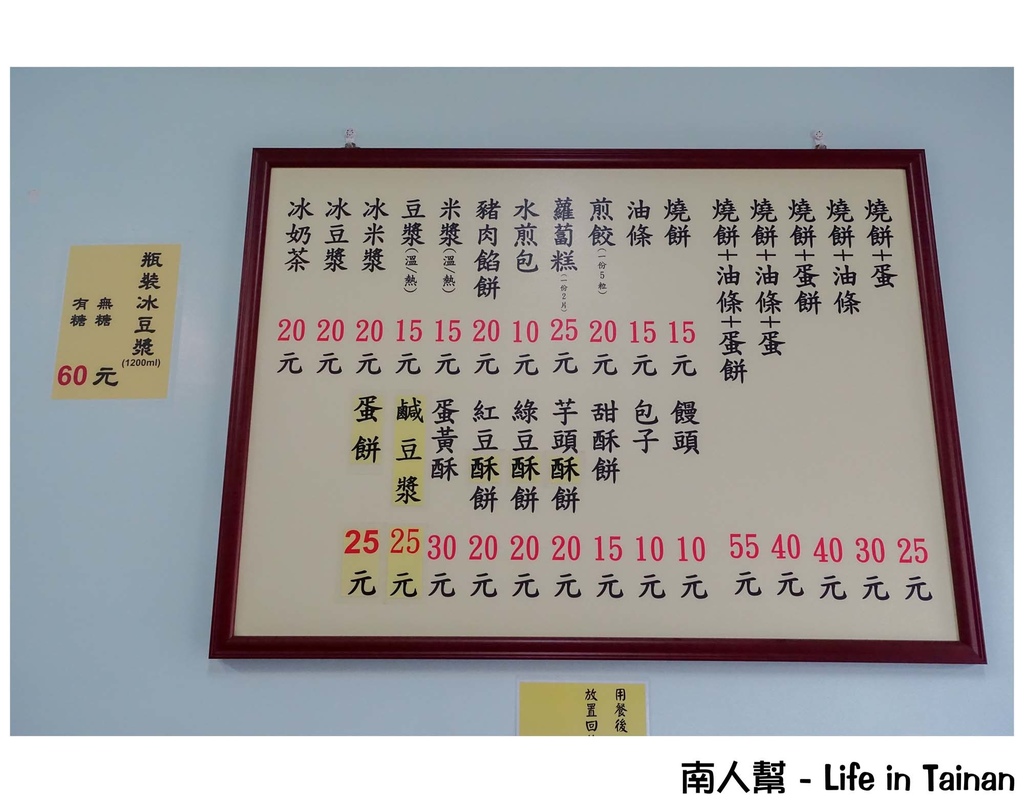 燒餅+蛋 25元
燒餅+油條 30元
燒餅+蛋餅 40元
燒餅+油條+蛋 40元
燒餅+油條+蛋餅 55元
燒餅 15元
油條 15元
煎餃(一份5粒) 20元
蘿蔔糕(一份2片) 25元
水煎包 10元
豬肉餡餅 20元
米漿(溫/熱) 15元
豆漿(溫/熱) 15元
冰米漿 20元
冰豆漿 20元
冰奶茶 20元
饅頭 10元
包子 10元
甜酥餅 15元
芋頭酥餅 20元
綠豆酥餅 20元
紅豆酥餅 20元
蛋黃酥 30元
鹹豆漿 25元
蛋餅 25元
瓶裝冰豆漿(1200ml)
無糖
有糖
60元
用餐後
放置回
南人幫 - Life in Tainan